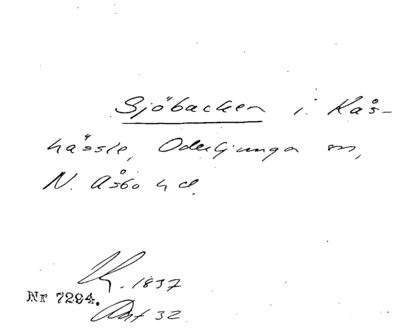 Sjöbacken i Kås-
hässle, Oderljunga sn,
N. Åsbo hd.
1837
Nr 7294.
32